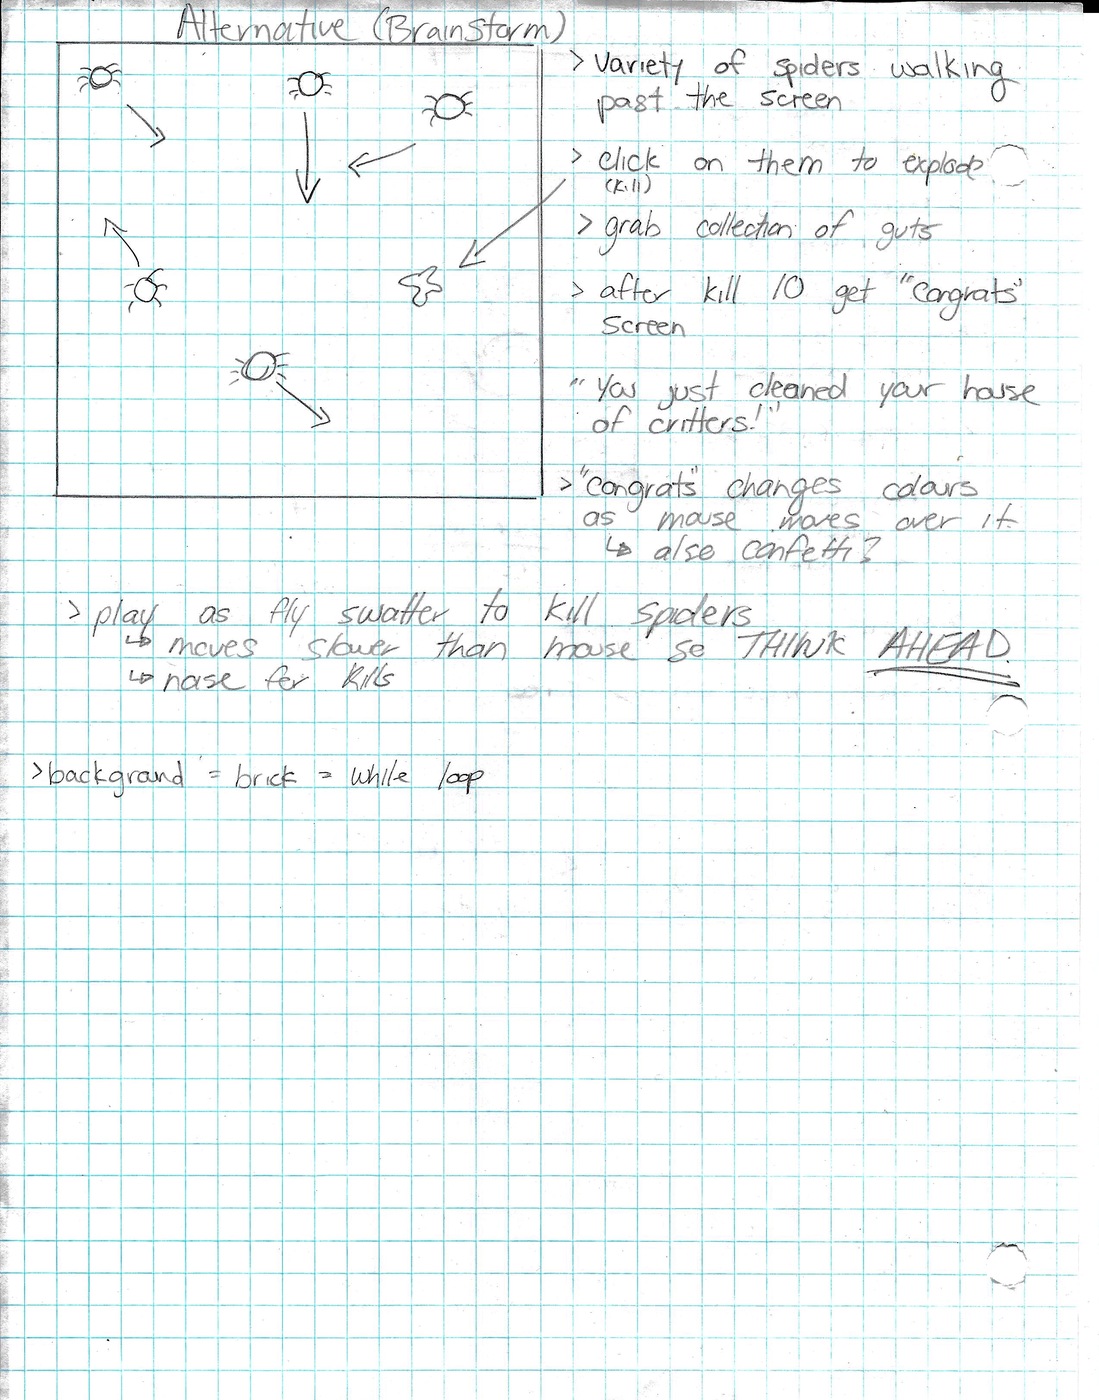 Alternative (Brainstorm)
> Variety of spiders walking
past the screen
> click on them to explode
(kill)
> grab collection of guts
> after kill 10 get "Congrats"
screen
"You just cleaned your house
of critters!"
> "Congrats" changes colours
as mouse moves over it
↳ also confetti?
> play as fly swatter to kill spiders
↳ moves slower than mouse so THINK AHEAD.
↳ noise for kills
> background = brick = while loop